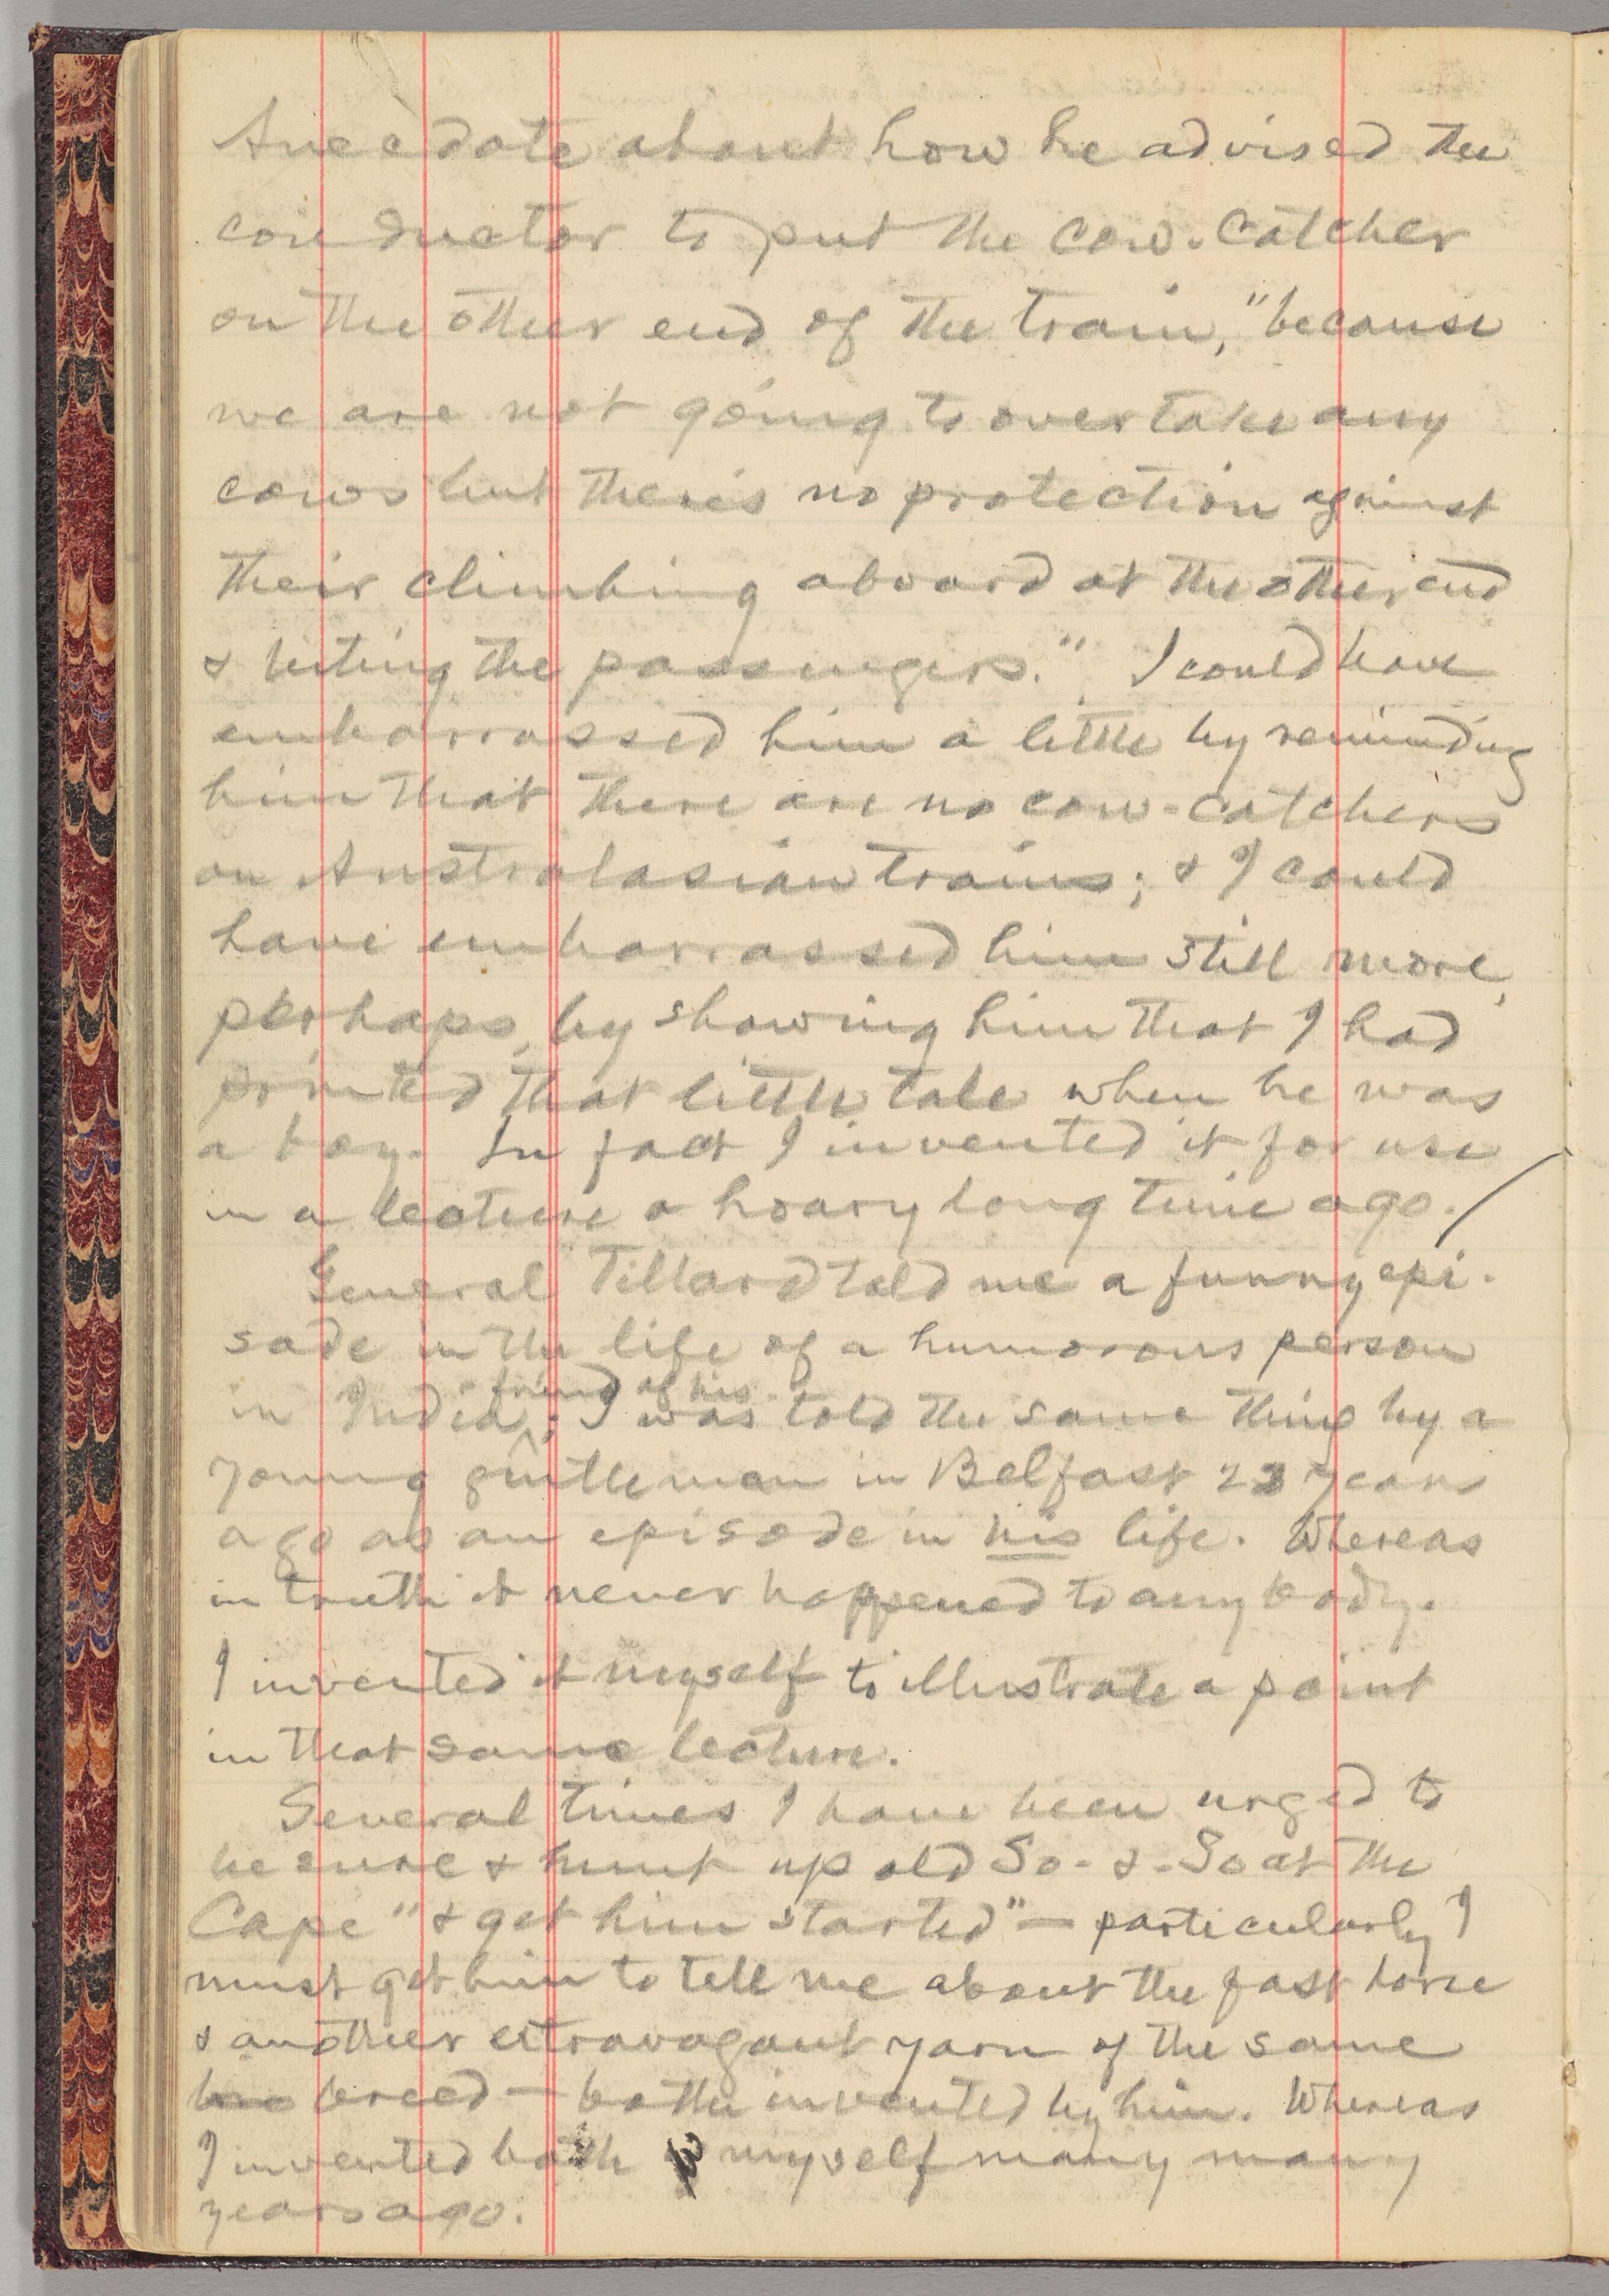 Anecdote about how he advised the
conductor to put the cow-catcher
on the other end of the train, "because
we are not going to overtake any
cows but there's no protection against
their climbing aboard at the other end
& biting the passengers." I could have
embarrassed him a little by reminding
him that there are no cow-catchers
on Australasian trains; & I could
have embarrassed him still more,
perhaps, by showing him that I had
printed that little tale when he was
a boy. In fact I invented it for use
in a lecture a hoary long time ago.
General Tillard told me a funny epi-
sode in the life of a humorous person
friend of his.
in India; I was told the same thing by a
young gentleman in Belfast 23 years
ago as an episode in his life. Whereas
in truth it never happened to anybody.
I invented it myself to illustrate a point
in that same lecture.
Several times I have been urged to
be sure & hunt up old So-&-So at the
Cape "& get him started" — particularly I
must get him to tell me about the fast horse
& another extravagant yarn of the same
breed — both invented by him. Whereas
I invented both myself many many
years ago.